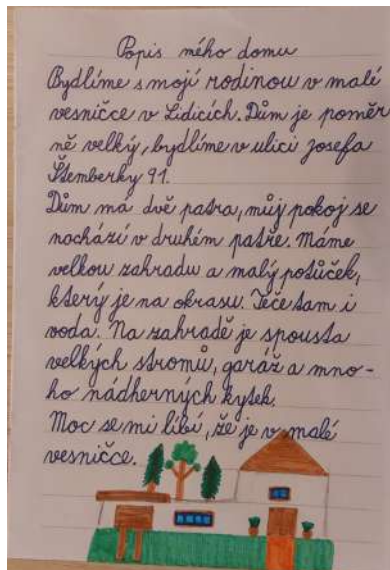 Popis mého domu
Bydlíme s mojí rodinou v malé
vesničce v Lidicích. Dům je poměr
ně velký, bydlíme v ulici Josefa
Štemberky 91.
Dům má dvě patra, můj pokoj se
nachází v druhém patře. Máme
velkou zahradu a malý potůček,
který je na okrasu. Teče tam i
voda. Na zahradě je spousta
velkých stromů, garáž a mno-
ho nádherných kytek.
Moc se mi líbí, že je v malé
vesničce.